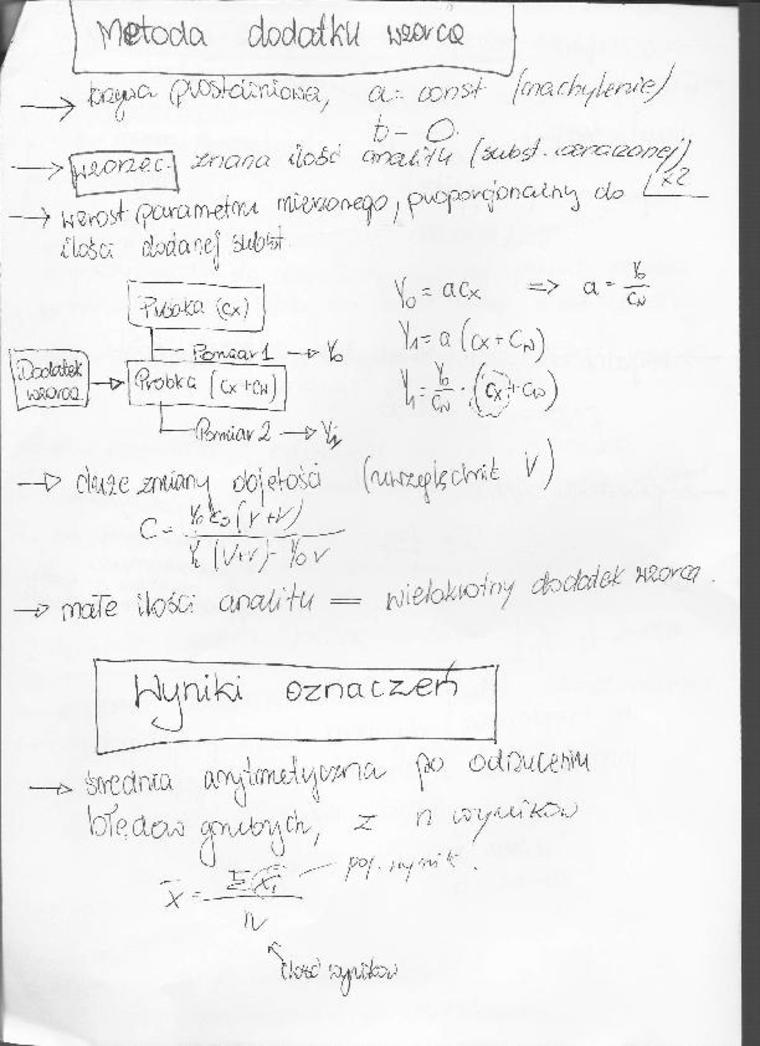 Metoda dodatku wzorca
→ krzywa prostoliniowa, a = const (nachylenie)
b = 0.
→ wzorzec: znana ilość analitu (subst. oznaczonej)
→ wzrost parametru mierzonego, proporcjonalny do x2
ilości dodanej subst
Próbka (cx)
Pomiar 1 → Y₀
Dodatek wzorca → Próbka (cx + cw)
Pomiar 2 → Y₁
Y₀ = acx => a = Y₀/cw
Y₁ = a (cx + cw)
Y₁ = Y₀/cw · (cx + cw)
→ duże zmiany objętości (uwzględnić V)
C = Y₀ c₀ (V + v) / Y₁ (V+v) - Y₀ v
→ małe ilości analitu = wielokrotny dodatek wzorca.
Wyniki oznaczeń
→ średnia arytmetyczna po odrzuceniu
błędów grubych, z n wyników
x̄ = Σxᵢ / n
poj. wynik.
ilość wyników